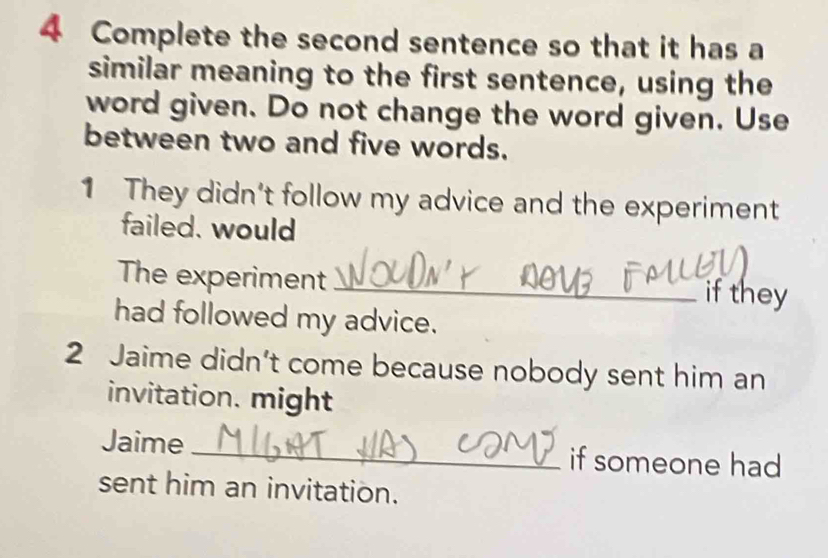 4 Complete the second sentence so that it has a
similar meaning to the first sentence, using the
word given. Do not change the word given. Use
between two and five words.
1 They didn't follow my advice and the experiment
failed. would
The experiment WOUDN'T HAVE FAILED if they
had followed my advice.
2 Jaime didn't come because nobody sent him an
invitation. might
Jaime MIGHT HAS COME if someone had
sent him an invitation.